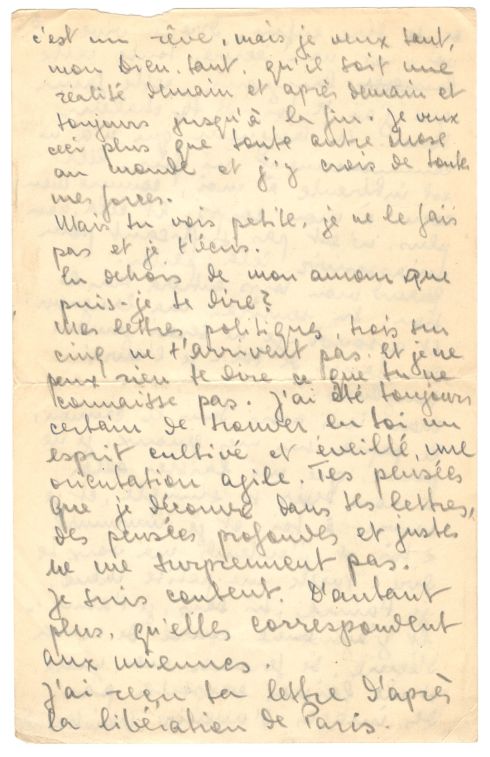 c'est un rêve, mais je veux tant,
mon Dieu. tant, qu'il soit une
réalité demain et après demain et
toujours jusqu'à la fin. Je veux
ceci plus que toute autre chose
au monde et j'y crois de toutes
mes forces.
Mais tu vois petite, je ne le fais
pas et je t'écris.
En dehors de mon amour que
puis-je te dire?
Mes lettres politiques, trois sur
cinq ne t'arrivent pas. Et je ne
peux rien te dire ce que tu ne
connaisse pas. J'ai été toujours
certain de trouver en toi un
esprit cultivé et éveillé, une
orientation agile. Tes pensées
que je découvre dans tes lettres,
des pensées profondes et justes
ne me surprennent pas.
Je suis content. D'autant
plus, qu'elles correspondent
aux miennes.
J'ai reçu ta lettre d'après
la libération de Paris.